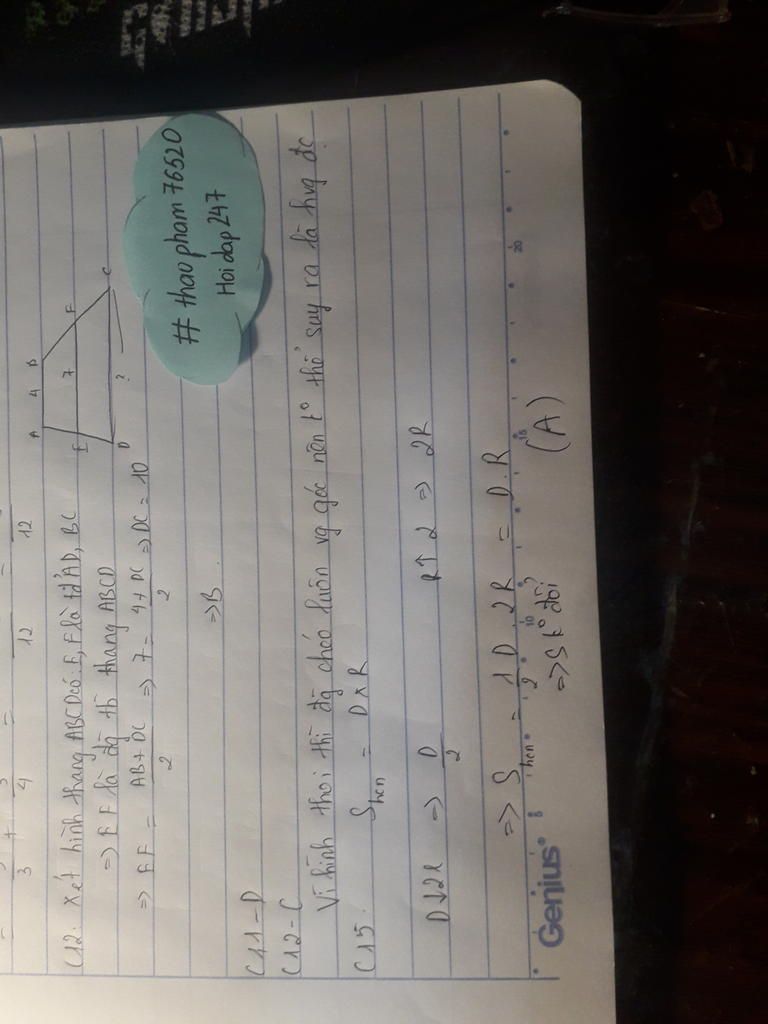 = — + 3 = — = —
3 4 12 12
C12: Xét hình thang ABCD có: E, F là tđ' AD, BC
=> EF là đg tb thang ABCD
=> EF = AB + DC / 2 => 7 = 4 + DC / 2 => DC = 10
=> B.
A 4 B
E 7 F
D ? C
# thaopham76520
Hoi dap 247
C11 - D
C12 - C
Vì hình thoi thì đg chéo luôn vg góc nên k° thể suy ra là hvg đc
C15. Shcn = D x R
D↓2l => D/2 R↑2 => 2R
=> Shcn = 1/2 D. 2R = D. R
=> S k° đổi (A)
Genius 8 10 15 20